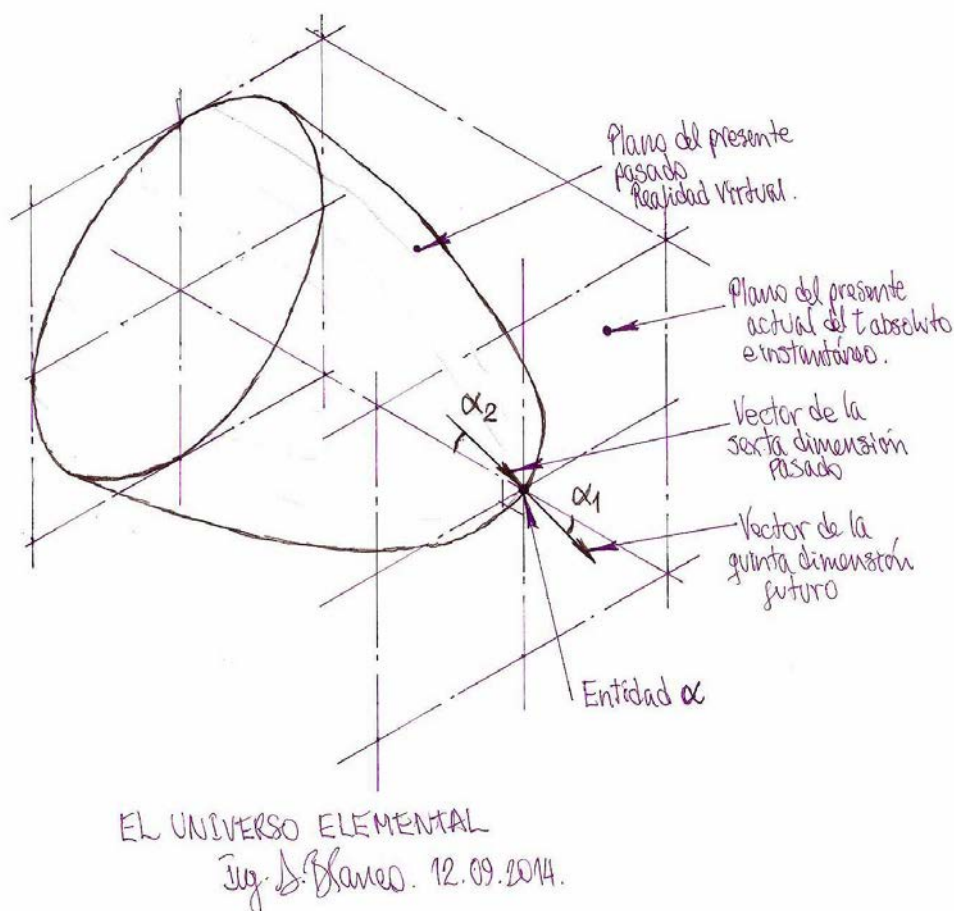 Plano del presente
pasado
Realidad virtual.
Plano del presente
actual del t absoluto
e instantáneo.
α2
Vector de la
sexta dimensión
pasado
α1
Vector de la
quinta dimensión
futuro
Entidad α
EL UNIVERSO ELEMENTAL
Ing. D. Blanco. 12.09.2014.